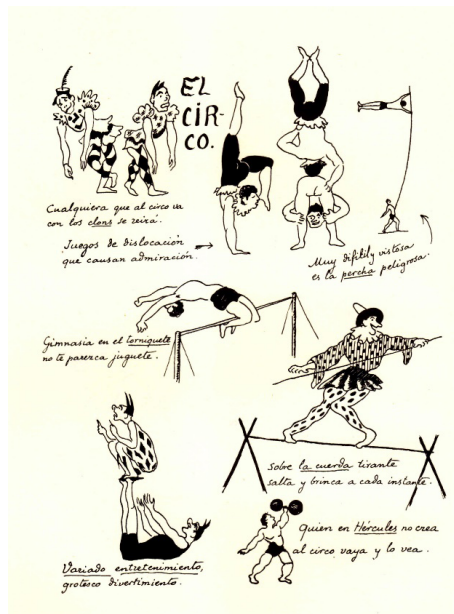 EL
CIR-
CO.
Cualquiera que al circo va
con los clons se reirá.
Juegos de dislocación
que causan admiración.
Muy difitil y vistosa
es la percha peligrosa.
Gimnasia en el torniquete
no te parezca juguete.
Sobre la cuerda tirante
salta y brinca a cada instante.
Quien en Hércules no crea
al circo vaya y lo vea.
Variado entretenimiento,
grotesco divertimiento.